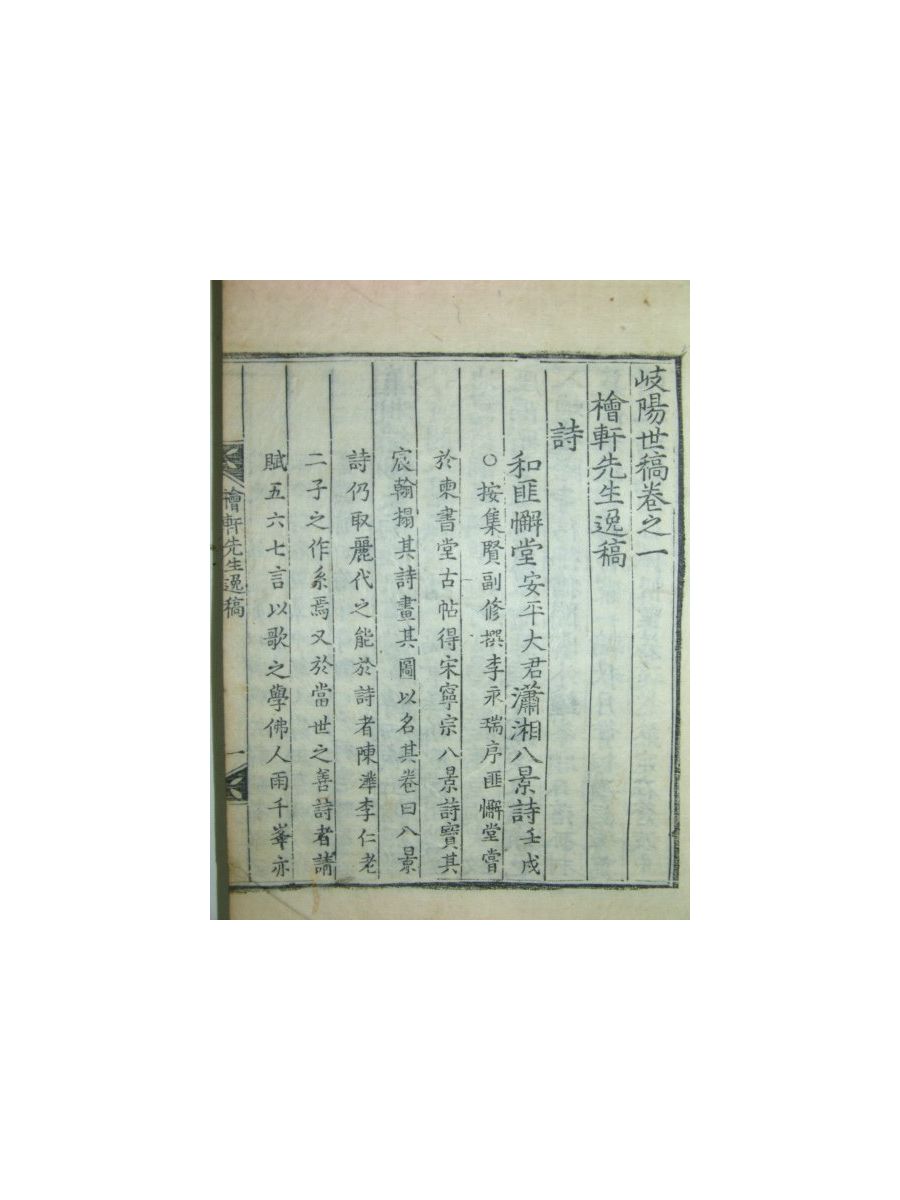 岐陽世稿卷之一
檜軒先生逸稿
詩
和匪懈堂安平大君瀟湘八景詩壬戌
○按集賢副修撰李永瑞序匪懈堂嘗
於東書堂古帖得宋寧宗八景詩寶其
宸翰搨其詩畫其圖以名其卷曰八景
詩仍取麗代之能於詩者陳澕李仁老
二子之作系焉又於當世之善詩者請
賦五六七言以歌之學佛人雨千峯亦
檜軒先生逸稿 一